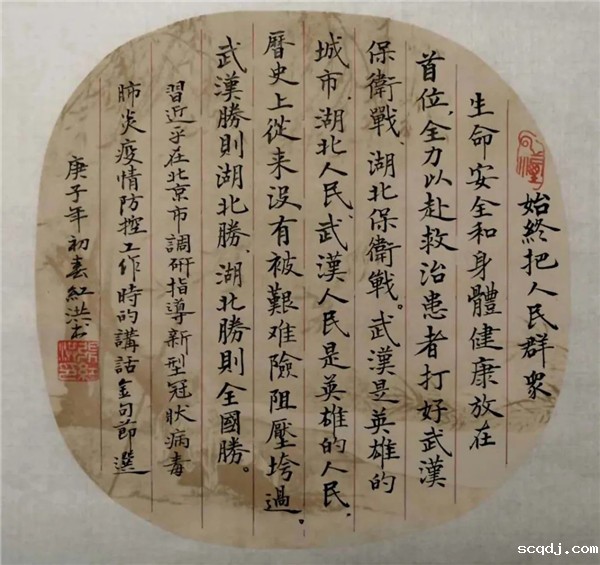 始終把人民群衆
生命安全和身體健康放在
首位,全力以赴救治患者打好武漢
保衛戰、湖北保衛戰。武漢是英雄的
城市、湖北人民、武漢人民是英雄的人民,
曆史上從来没有被艱难險阻壓垮過。
武漢勝則湖北勝、湖北勝則全國勝。
習近平在北京市調研指導新型冠狀病毒
肺炎疫情防控工作時的講話金句節選
庚子年初春紅洪书
scqdj.com